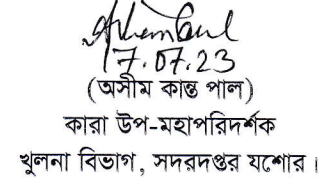 17.07.23
(অসীম কান্ত পাল)
কারা উপ-মহাপরিদর্শক
খুলনা বিভাগ, সদরদপ্তর যশোর।